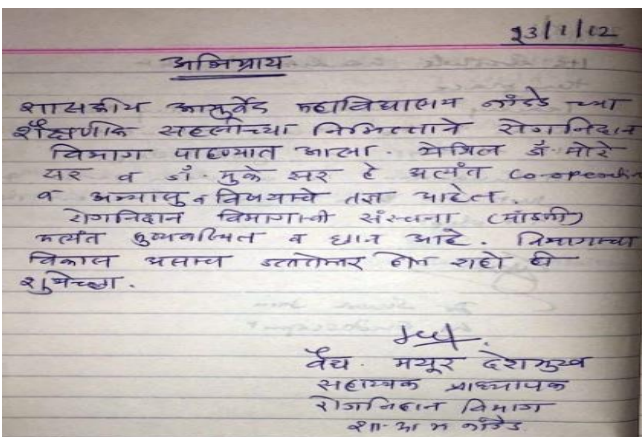 23/1/12
अभिप्राय
शासकीय आयुर्वेद महाविद्यालय नांदेड च्या
शैक्षणीक सहलीच्या निमित्ताने रोगनिदान
विभाग पाहण्यात आला. येथिल डॉ. मोरे
सर व डॉ. मुके सर हे अत्यंत
व अभ्यासु व विषयाचे तज्ञ आहेत.
रोगनिदान विभागाची संरचना (मांडणी)
अत्यंत सुव्यवस्थित व छान आहे. विभागाचा
विकास असाच उत्तरोत्तर होत राहो ही
शुभेच्छा.
वैद्य. मयूर देशमुख
सहाय्यक प्राध्यापक
रोगनिदान विभाग
शा. आ म नांदेड